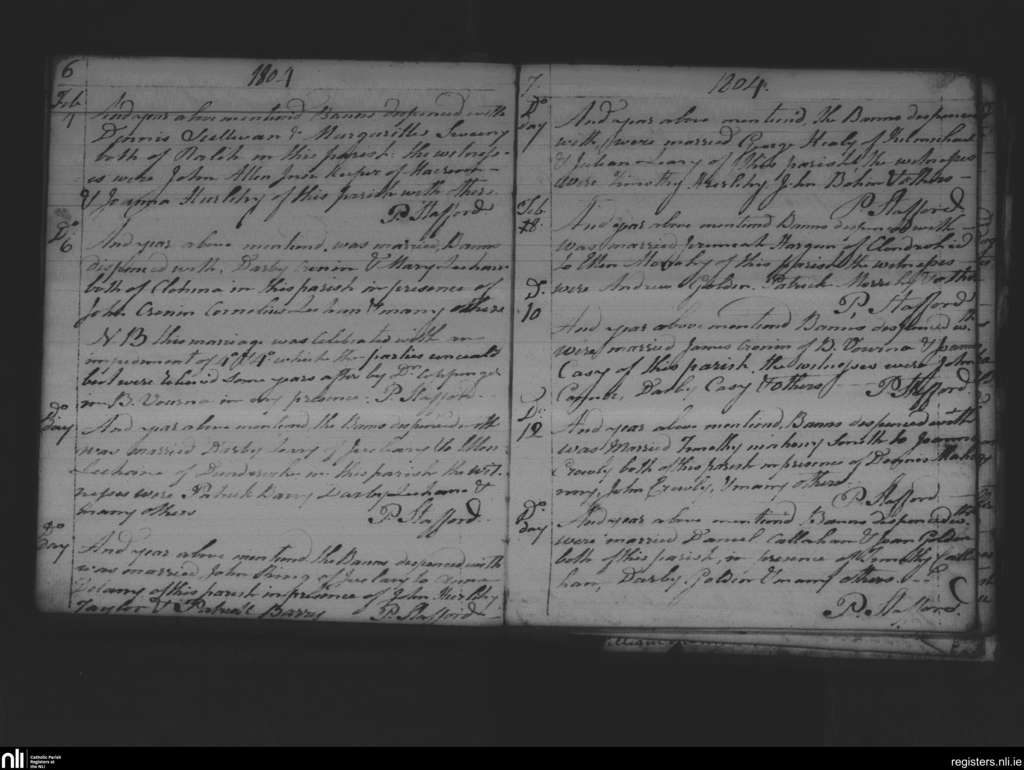 6
1804
Feb
And year above mentiond Banns dispenced with
Dennis Sullivan & Margarilles Sweeny
both of in this parish. the witness-
es were John Allen Junr keeper of
& Joanna Hurlihy of this parish with others
P. Stafford
Do
6
And year above mentiond, was married, Banns
dispenced with, Darby Cronin & Mary Leehane
both of Clohina in this parish in presence of
John Cronin Cornelius Leehane & many others
N B this marriage was celebrated with an
impediment of which the parties conceal'd
but were some years after by Dr.
in B. Vourna in my presence. P. Stafford
Do
Day
And year above mentiond the Banns dispenced with
was married Darby of to Ellen
Leehane of in this parish the wit-
nesses were Patrick Barry Darby Leehane &
many others
P. Stafford
Do
Day
And year above mentiond the Banns dispenced with
was married John of to
of this parish in presence of John Hurlihy
Taylor & Patrick Barry P. Stafford
7.
1804.
Do
Day
And year above mentiond, the Banns dispenced
with, were married George Healy of Kilmichael
& Julian Leary of this parish. The witnesses
were Timothy Hurlihy John Bohen & others
P Stafford
Feb
8.
And year above mentiond Banns dispenced with
was married Jeremiah Horgan of Clondrohid
to Ellen of this parish the witnesses
were Andrew Golden, Patrick & others
P. Stafford
D.
10
And year above mentiond Banns dispenced with
were married James Cronin of B. Vourna & Joanna
Casy of this parish. the witnesses were John
Connell, Darby Casy & others P. Stafford
Do
12
And year above mentiond, Banns dispenced with
was Married Timothy Smith to Joanna
Crowly both of this parish in presence of Dennis Maho
ny, John Crowly, & many others
P Stafford
Do
day
And year above mentiond, Banns dispenced with
were married Daniel Callahan & Joan Golden
both of this parish, in presence of Timothy Calla
han, Darby Golden & many others
P. Stafford.
nli
Catholic Parish
Registers at
the NLI
registers.nli.ie